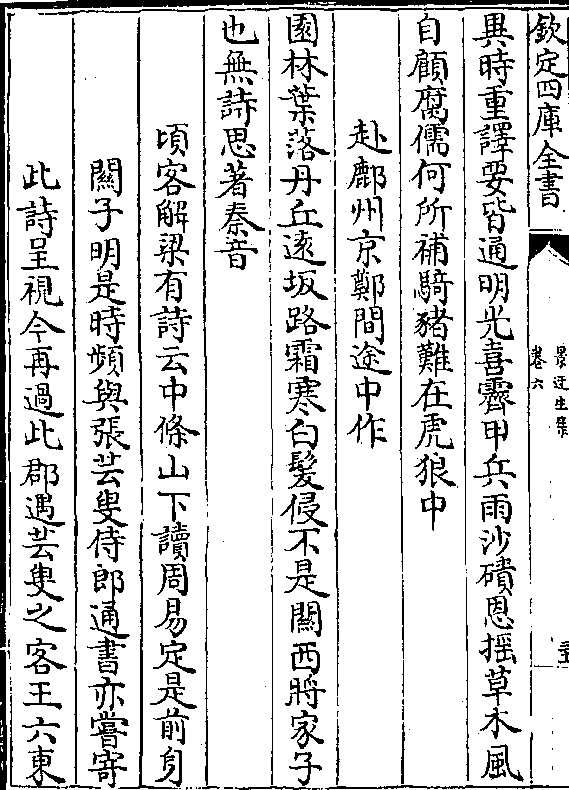 欽定四庫全書
景迂生集
卷六
異時重譯要皆通明光喜霽甲兵雨沙磧恩揺草木風
自顧腐儒何所補騎豬難在虎狼中
赴鄜州京鄭間途中作
園林葉落丹丘遠坂路霜寒白髪侵不是關西將家子
也無詩思著秦音
頃客解梁有詩云中條山下讀周易定是前身
關子明是時頻與張芸叟侍郎通書亦嘗寄
此詩呈視今再過此郡遇芸叟之客王六東